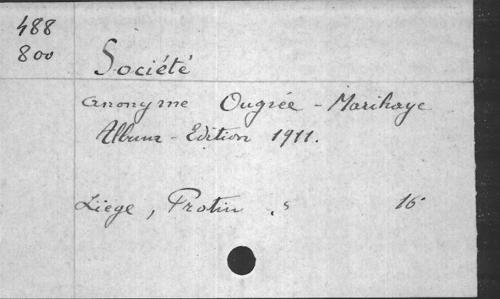 488
800
Société
anonyme Ougrée - Marihaye
Album - Edition 1911.
Liege, Protin . s 16°